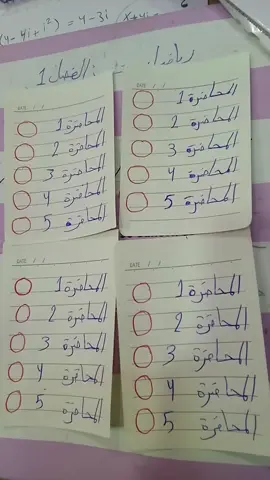 (4-4i+i²) = 4-3i
الفصل 1
DATE / /
المحاضرة 1
المحاضرة 2
المحاضرة 3
المحاضرة 4
المحاضرة 5
DATE / /
المحاضرة 1
المحاضرة 2
المحاضرة 3
المحاضرة 4
المحاضرة 5
DATE / /
المحاضرة 1
المحاضرة 2
المحاضرة 3
المحاضرة 4
المحاضرة 5
DATE / /
المحاضرة 1
المحاضرة 2
المحاضرة 3
المحاضرة 4
المحاضرة 5